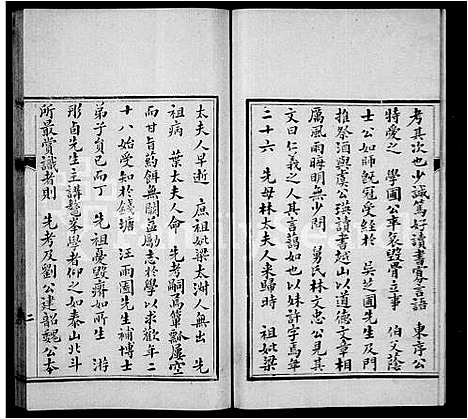 考其次也少誠篤好讀書寡言語　東序公
特愛之　學圃公卒哀毀骨立事　伯父蔭
士公如師既冠受經於　吳芝圃先生及門
推祭酒與虞公琪讀書越山以道德文章相
厲風雨晦明無少間　舅氏林文忠公見其
文曰仁義之人其言藹如也以妹許字焉年
二十六　先母林太夫人來歸時　祖妣梁
太夫人早逝　庶祖妣梁太淑人無出　先
祖病　葉太夫人命　先考嗣焉簞瓢屢空
而甘旨藥餌無闕益勵志於學以求歡年二
十八始受知於錢塘　汪雨園先生補博士
弟子員已而丁　先祖憂毀瘠如所生　游
彤卣先生主講鼇峯學者仰之如泰山北斗
所最賞識者則　先考及劉公建韶魏公本
二